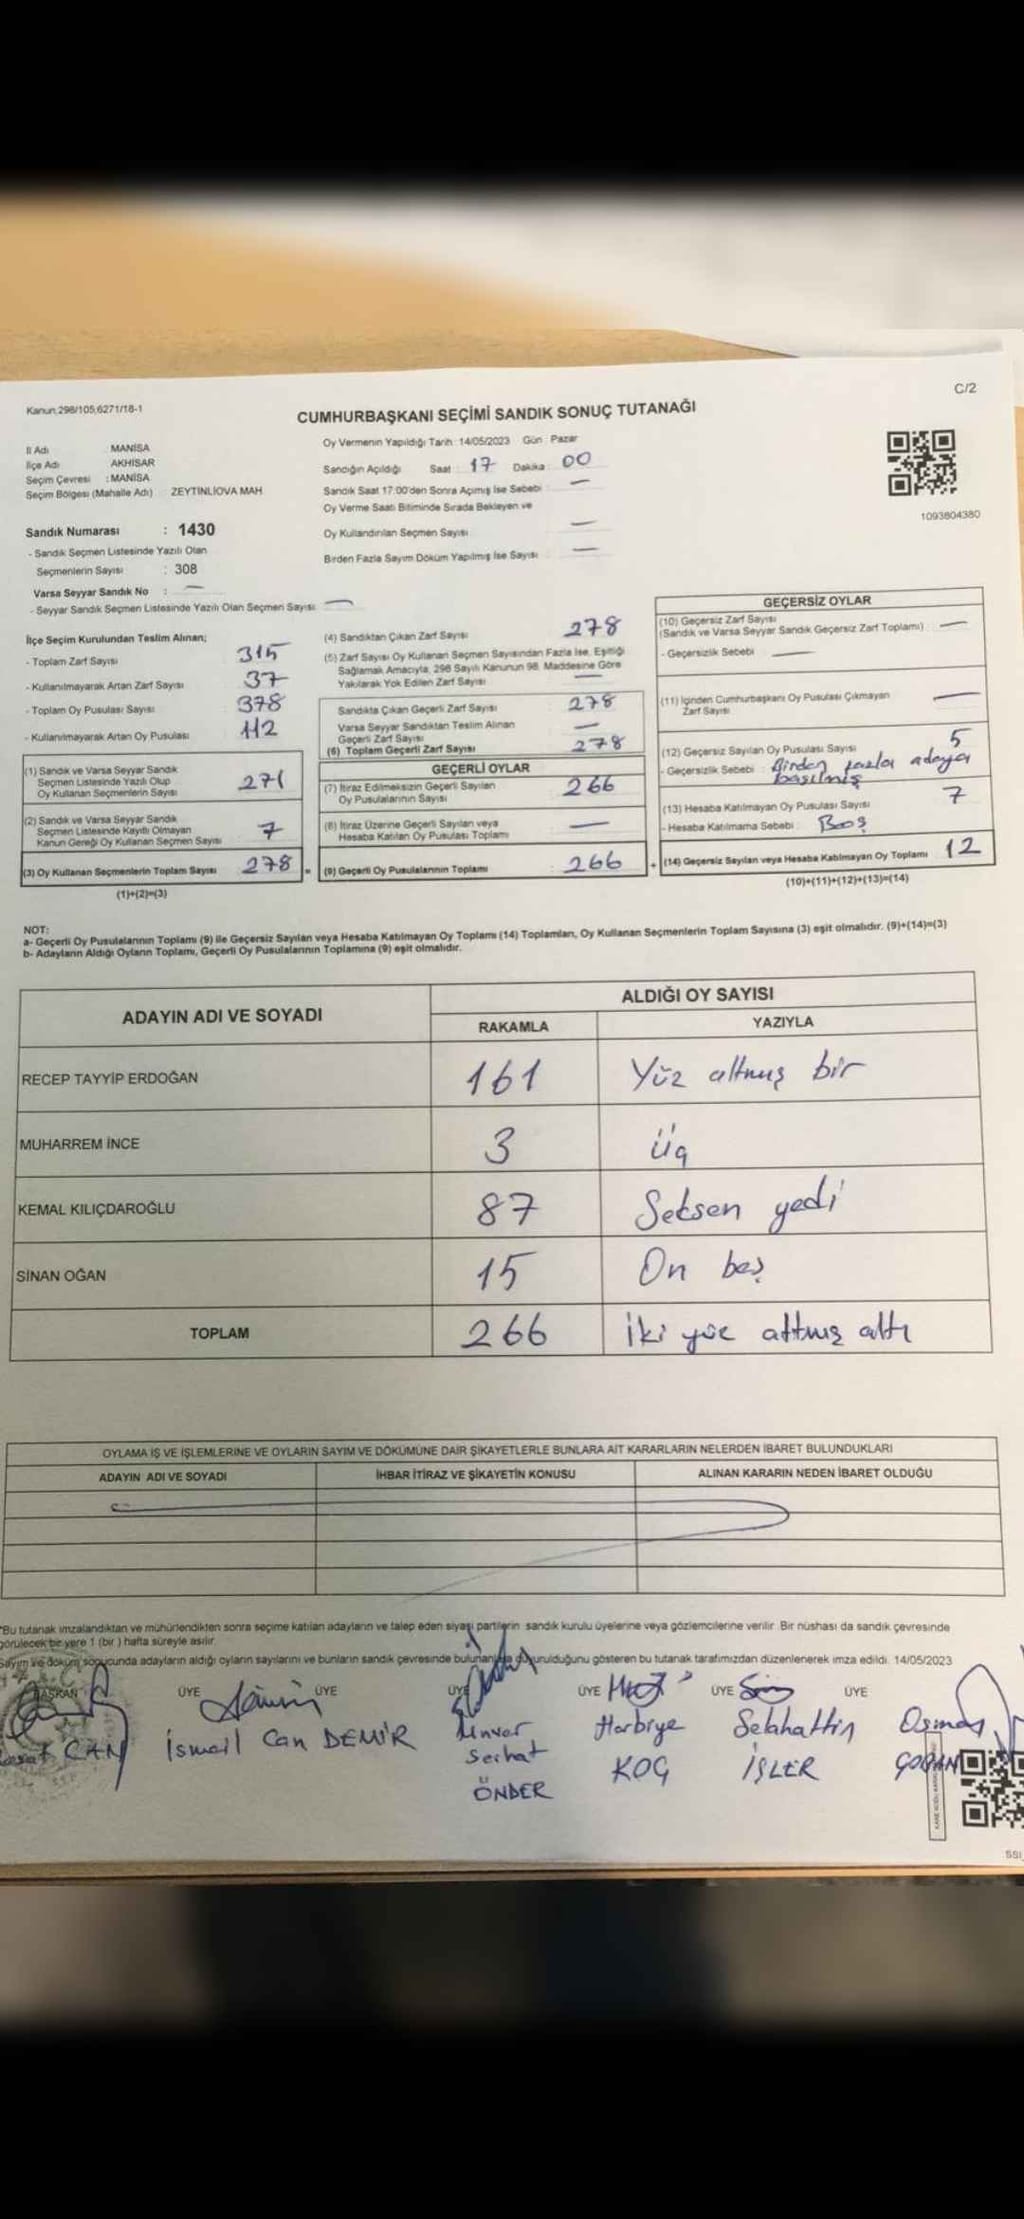 Kanun;298/105,6271/18-1
C/2
CUMHURBAŞKANI SEÇİMİ SANDIK SONUÇ TUTANAĞI
İl Adı MANİSA
İlçe Adı AKHİSAR
Seçim Çevresi : MANİSA
Seçim Bölgesi (Mahalle Adı) ZEYTİNLİOVA MAH
Oy Vermenin Yapıldığı Tarih : 14/05/2023 Gün : Pazar
Sandığın Açıldığı Saat : 17 Dakika : 00
Sandık Saat 17:00'den Sonra Açımış İse Sebebi : —
Oy Verme Saati Bitiminde Sırada Bekleyen ve
Oy Kullandırılan Seçmen Sayısı —
Birden Fazla Sayım Döküm Yapılmış İse Sayısı —
1093804380
Sandık Numarası : 1430
- Sandık Seçmen Listesinde Yazılı Olan
Seçmenlerin Sayısı : 308
Varsa Seyyar Sandık No : —
- Seyyar Sandık Seçmen Listesinde Yazılı Olan Seçmen Sayısı: —
İlçe Seçim Kurulundan Teslim Alınan;
- Toplam Zarf Sayısı 315
- Kullanılmayarak Artan Zarf Sayısı 37
- Toplam Oy Pusulası Sayısı 378
- Kullanılmayarak Artan Oy Pusulası 112
(1) Sandık ve Varsa Seyyar Sandık
Seçmen Listesinde Yazılı Olup
Oy Kullanan Seçmenlerin Sayısı 271
(2) Sandık ve Varsa Seyyar Sandık
Seçmen Listesinde Kayıtlı Olmayan
Kanun Gereği Oy Kullanan Seçmen Sayısı 7
(3) Oy Kullanan Seçmenlerin Toplam Sayısı 278 =
(1)+(2)=(3)
(4) Sandıktan Çıkan Zarf Sayısı 278
(5) Zarf Sayısı Oy Kullanan Seçmen Sayısından Fazla İse, Eşitliği
Sağlamak Amacıyla, 298 Sayılı Kanunun 98. Maddesine Göre
Yakılarak Yok Edilen Zarf Sayısı —
Sandıkta Çıkan Geçerli Zarf Sayısı 278
Varsa Seyyar Sandıktan Teslim Alınan
Geçerli Zarf Sayısı —
(6) Toplam Geçerli Zarf Sayısı 278
GEÇERLİ OYLAR
(7) İtiraz Edilmeksizin Geçerli Sayılan
Oy Pusulalarının Sayısı 266
(8) İtiraz Üzerine Geçerli Sayılan veya
Hesaba Katılan Oy Pusulası Toplamı —
(9) Geçerli Oy Pusulalarının Toplamı : 266 +
GEÇERSİZ OYLAR
(10) Geçersiz Zarf Sayısı
(Sandık ve Varsa Seyyar Sandık Geçersiz Zarf Toplamı) —
- Geçersizlik Sebebi —
(11) İçinden Cumhurbaşkanı Oy Pusulası Çıkmayan
Zarf Sayısı —
(12) Geçersiz Sayılan Oy Pusulası Sayısı 5
- Geçersizlik Sebebi : Birden fazla adaya
basılmış
(13) Hesaba Katılmayan Oy Pusulası Sayısı 7
- Hesaba Katılmama Sebebi : Boş
(14) Geçersiz Sayılan veya Hesaba Katılmayan Oy Toplamı 12
(10)+(11)+(12)+(13)=(14)
NOT:
a- Geçerli Oy Pusulalarının Toplamı (9) ile Geçersiz Sayılan veya Hesaba Katılmayan Oy Toplamı (14) Toplamları, Oy Kullanan Seçmenlerin Toplam Sayısına (3) eşit olmalıdır. (9)+(14)=(3)
b- Adayların Aldığı Oyların Toplamı, Geçerli Oy Pusulalarının Toplamına (9) eşit olmalıdır.
ADAYIN ADI VE SOYADI ALDIĞI OY SAYISI
RAKAMLA YAZIYLA
RECEP TAYYİP ERDOĞAN 161 Yüz altmış bir
MUHARREM İNCE 3 Üç
KEMAL KILIÇDAROĞLU 87 Seksen yedi
SİNAN OĞAN 15 On beş
TOPLAM 266 İki yüz altmış altı
OYLAMA İŞ VE İŞLEMLERİNE VE OYLARIN SAYIM VE DÖKÜMÜNE DAİR ŞİKAYETLERLE BUNLARA AİT KARARLARIN NELERDEN İBARET BULUNDUKLARI
ADAYIN ADI VE SOYADI İHBAR İTİRAZ VE ŞİKAYETİN KONUSU ALINAN KARARIN NEDEN İBARET OLDUĞU
*Bu tutanak imzalandıktan ve mühürlendikten sonra seçime katılan adayların ve talep eden siyasi partilerin sandık kurulu üyelerine veya gözlemcilerine verilir. Bir nüshası da sandık çevresinde
görülecek bir yere 1 (bir ) hafta süreyle asılır.
Sayım ve döküm sonucunda adayların aldığı oyların sayılarını ve bunların sandık çevresinde bulunanlara duyurulduğunu gösteren bu tutanak tarafımızdan düzenlenerek imza edildi. 14/05/2023
BAŞKAN ÜYE ÜYE ÜYE ÜYE ÜYE ÜYE
CAN İsmail Can DEMİR Enver Harbiye Selahattin Osman
Serhat KOÇ İŞLER ÇOBAN
ÖNDER
SSI